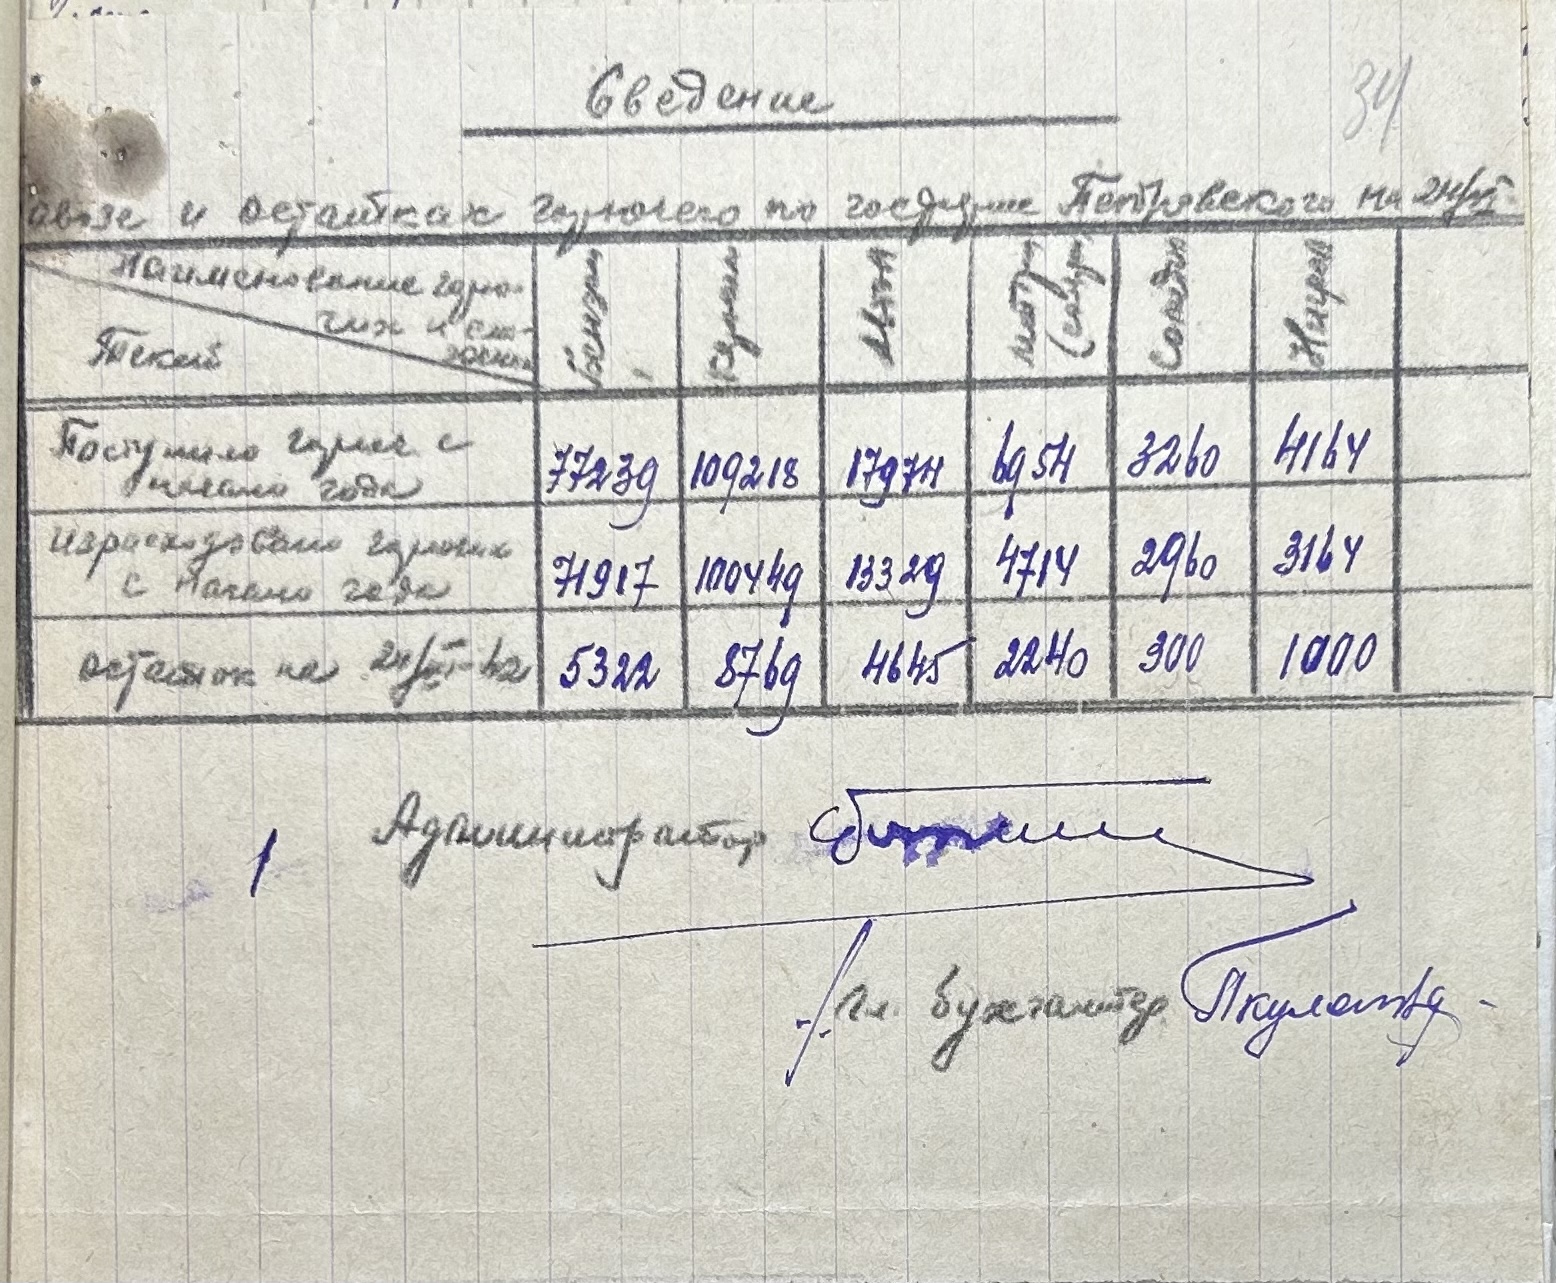 34
Сведение
и остатках горючего по госферме Петровского на 24/VI
Наименование горю-
чих и сма-
Бензин
Керосин
Солидол
Нигрол
Поступило горюч. с
начало года
77239 109218 17974 6954 3260 4164
израсходовано горючих
с начало года
71917 100449 13329 4714 2960 3164
остаток на 24/VI-42
5322 8769 4645 2240 300 1000
Администратор
Гл. бухгалтер